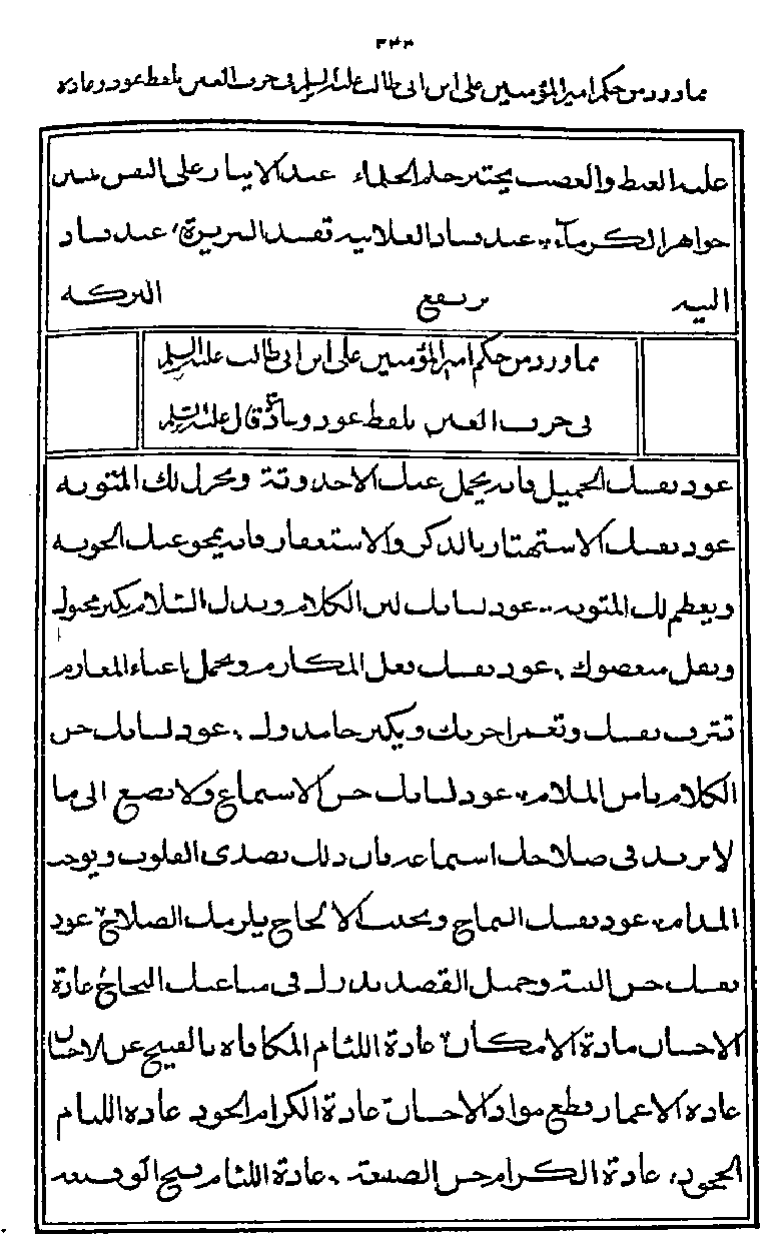 ٣٤٤
مما ورد من حكم امير المؤمنين على ابن ابى طالب عليه السلم فى حرف العين بلفظ عود وعادة
عليه الغيظ والغضب يختبر حلم الحلماء عند الايثار على النفس تتبين
جواهر الكرماء عند فساد العلانية تفسد السريرة عند فساد
النية ترتفع البركة
مما ورد من حكم امير المؤمنين على ابن ابى طالب عليه السلم
فى حرف العين بلفظ عود قال عليه السلم
عود نفسك الجميل فانه يجمل عنك الاحدوثة ويجزل لك المثوبة
عود نفسك الاستهتار بالذكر والاستغفار فانه يمحو عنك الحوبة
ويعظم لك المثوبة عود لسانك لين الكلام وبذل السلام يكثر محبوك
ويقل مبغضوك عود نفسك فعل المكارم وتحمل اعباء المغارم
تشرف نفسك وتعمر اخريك ويكثر حامدوك عود لسانك حسن
الكلام تامن الملام عود لسانك حسن الاستماع ولا تصغ الى ما
لا يزيد فى صلاحك استماعه فان ذلك يصدى القلوب ويوجب
المذام عود نفسك السماح وتجنب الالحاح يلزمك الصلاح عود
نفسك حسن النية وجميل القصد تدرك فى مساعيك النجاح عادة
الاحسان مادة الامكان عادة اللئام المكافاة بالقبيح عن الاحسان
عادة الاغمار قطع مواد الاحسان عادة الكرام الجود عادة اللئام
الجحود عادة الكرام حسن الصنيعة عادة اللئام قبح الوقيعة